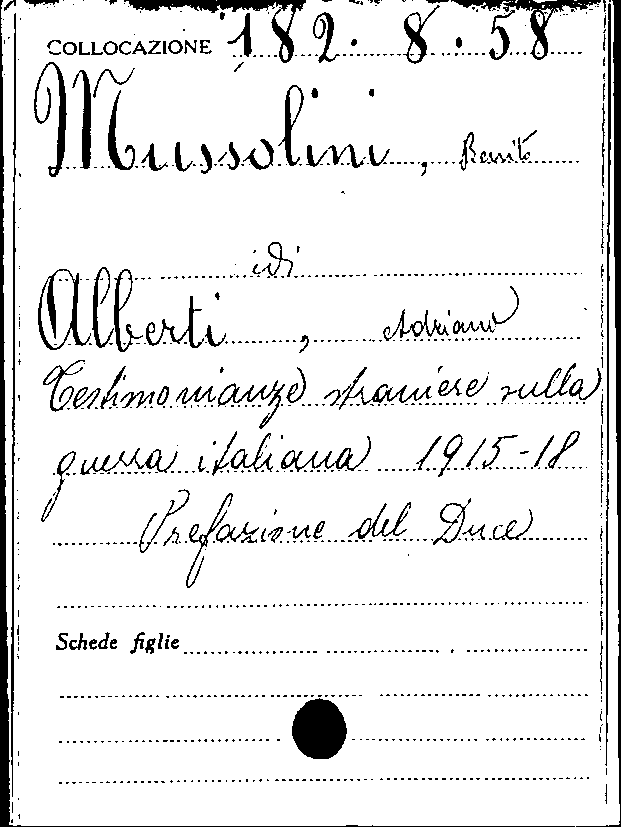 COLLOCAZIONE 182.8.58
Mussolini, Benito
Alberti, Adriano
Testimonianze straniere sulla
guerra italiana 1915-18
Prefazione del Duce
Schede figlie